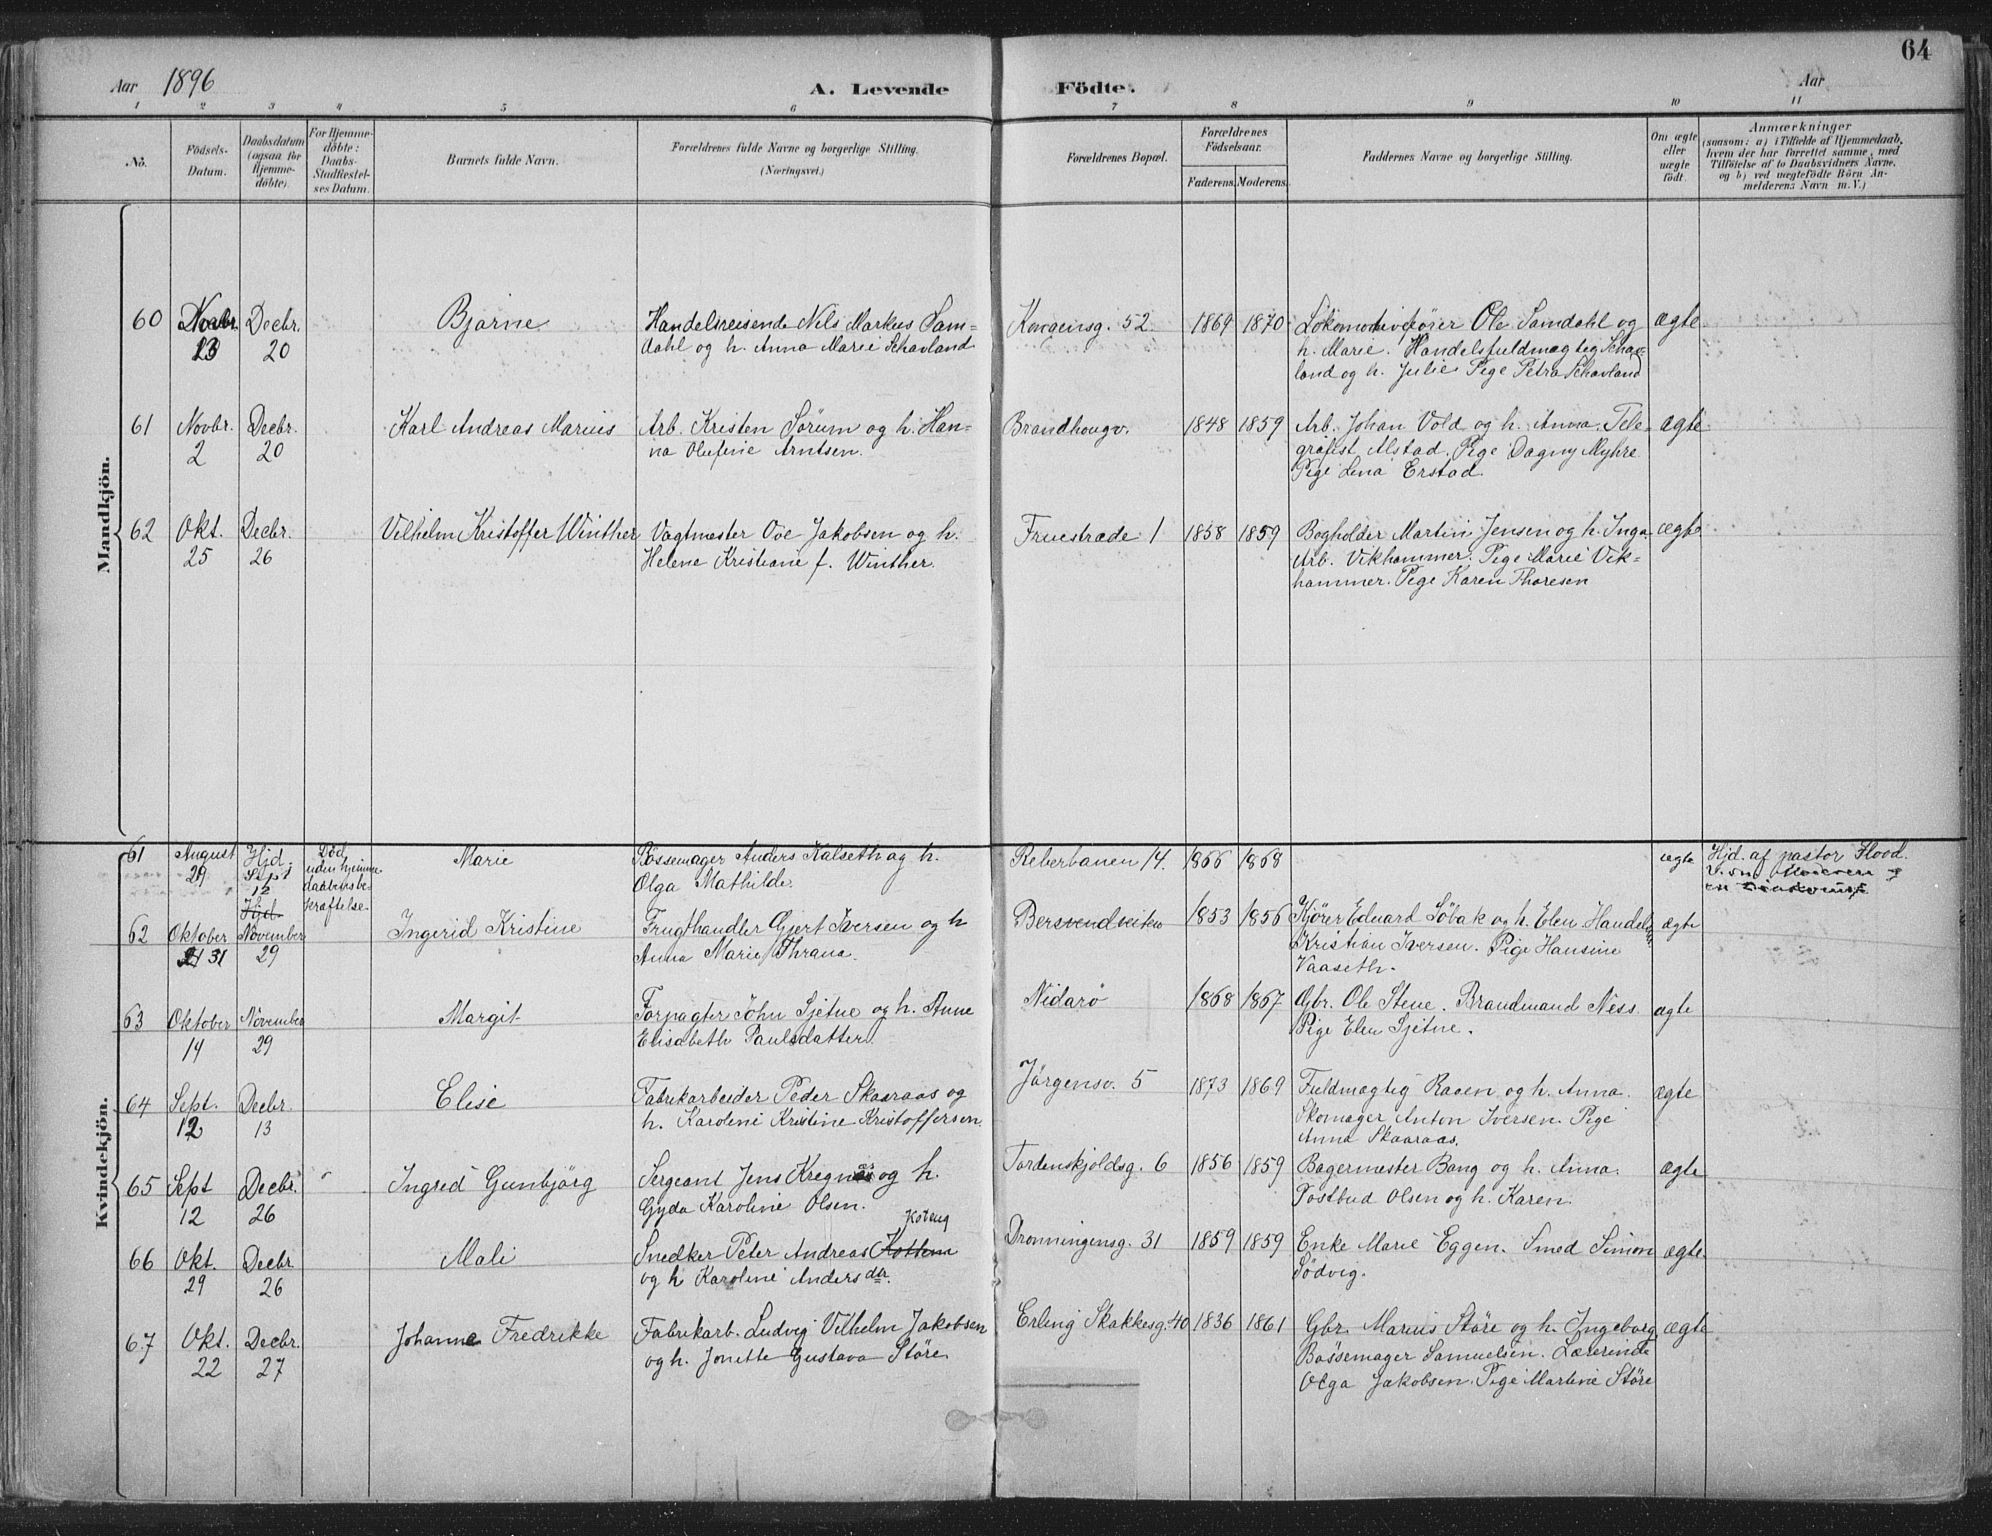 64
Aar 1896 A. Levende Födte. Aar
1 2 3 4 5 6 7 8 9 10 11
No. Födsels-Datum. Daabsdatum (ogsaa for Hjemme-döbte). For Hjemme-döbte: Daabs-Stadfæstel-ses Datum. Barnets fulde Navn. Forældrenes fulde Navne og borgerlige Stilling. (Næringsvei.) Forældrenes Bopæl. Forældrenes Födselsaar. Faderens. Moderens. Faddernes Navne og borgerlige Stilling. Om ægte eller uægte födt. Anmærkninger (saasom: a) i Tilfælde af Hjemmedaab, hvem der har forrettet samme, med Tilföielse af to Daabsvidners Navne, og b) ved uægtefödte Börn An-melderens Navn m. V.)
Mandkjön.
60 Novbr. Decbr. Bjarne Handelsreisende Nils Markus Sam= Kongensg. 52. 1869 1870 Lokomotivfører Ole Samdahl og ægte
13 20 dahl og h. Anna Marie Schavland h. Marie. Handelsfuldmægtig Schav-
land og h. Julie Pige Petra Schavland
61 Novbr. Decbr. Karl Andreas Marius Arb. Kristen Sörum og h. Han= Brandhougv. 1848 1859 Arb. Johan Vold og h. Anna. Tele- ægte
2 20 na Olufine Arntsen. grafist Alstad. Pige Dagny Myhre
Pige Lina Erstad.
62 Okt. Decbr. Vilhelm Kristoffer Winther Vagtmester Ove Jakobsen og h. Fruestræde 1 1858 1859 Bogholder Martin Jensen og h. Inga ægte
25 26 Helene Kristiane f. Winther. Arb. Vikhammer. Pige Marie Vik=
hammer. Pige Karen Thoresen
Kvindekjön.
61 August Hjd. Død Marie Bössemager Anders Kalseth og h. Reberbanen 14. 1866 1868 ægte Hjd. af pastor Flood.
29 Sept 12 uden hjemme daabens be kræftelse Olga Mathilde.
Hjd.
62 Oktober November Ingerid Kristine Frugthandler Gjert Iversen og h Bersvendveiten 1853 1856 Kjörer Eduard Söbak og h. Elen Handelsm. ægte
31 29 Anna Marie Thrana. Kristian Iversen. Pige Hansine
Vaaseth.
63 Oktober November Margit Forpagter John Sjetne og h. Anne Nidarö 1868 1867 Gbr. Ole Stene. Brandmand Ness. ægte
14 29 Elisabeth Paulsdatter. Pige Elen Sjetne.
64 Sept. Decbr. Elise Fabrikarbeider Peder Skaaraas og Jörgensv. 5 1873 1869 Fuldmægtig Raaen og h. Anna. ægte
12 13 h. Karoline Kristine Kristoffersen. Skomager Anton Iversen. Pige
Anna Skaaraas.
65 Sept Decbr. Ingrid Gunbjörg Sergeant Jens Kregnæs og h. Tordenskjoldsg. 6 1856 1859 Bagermester Bang og h. Anna. ægte
12 26 Gyda Karoline Olsen. Postbud Olsen og h. Karen.
66 Okt. Decbr. Mali Snedker Peter Andreas Kottem Koteng Dronningensg. 31 1859 1859 Enke Marie Eggen. Smed Simon ægte
29 26 og h Karoline Andersdtr. Södvig.
67 Okt. Decbr. Johanne Fredrikke Fabrikarb. Ludvig Vilhelm Jakobsen Erling Skakkesg. 40 1836 1861 Gbr. Marius Störe og h. Ingeborg ægte
22 27 og h. Jonette Gustava Störe Bössemager Samuelsen. Lærerinde
Olga Jakobsen. Pige Martine Störe